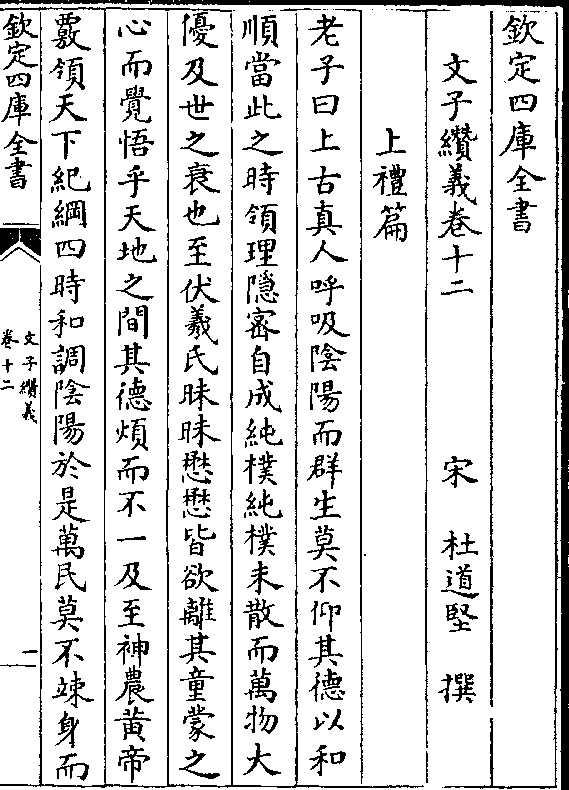 欽定四庫全書
文子纘義卷十二 宋 杜道堅 撰
上禮篇
老子曰上古真人呼吸陰陽而群生莫不仰其德以和
順當此之時領理隱密自成純樸純樸未散而萬物大
優及世之衰也至伏羲氏昧昧懋懋皆欲離其童蒙之
心而覺悟乎天地之間其德煩而不一及至神農黃帝
覈領天下紀綱四時和調陰陽於是萬民莫不竦身而
欽定四庫全書
文子纘義
卷十二
一